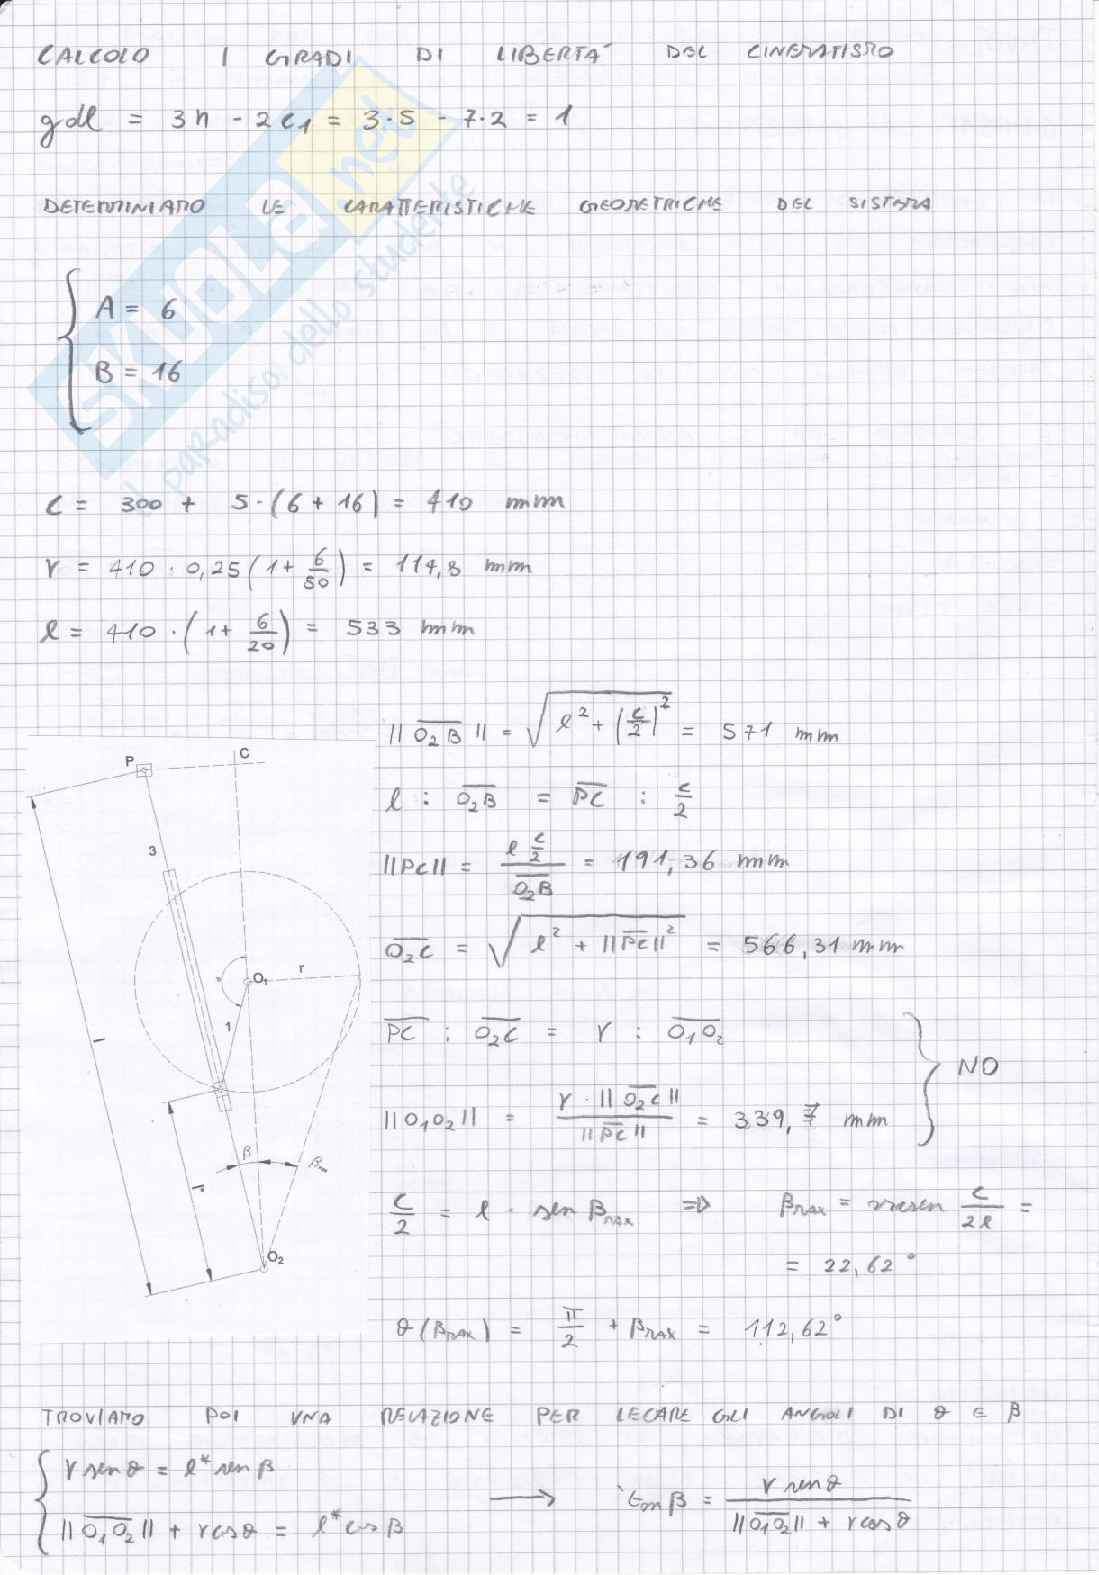 CALCOLO I GRADI DI LIBERTA' DEL CINEMATISMO
gdl = 3n - 2c₁ = 3·5 - 7·2 = 1
DETERMINIAMO LE CARATTERISTICHE GEOMETRICHE DEL SISTEMA
A = 6
B = 16
c = 300 + 5·(6+16) = 410 mm
r = 410 · 0,25 (1 + 6/50) = 114,8 mm
l = 410 · (1 + 6/20) = 533 mm
||O₂B|| = √(l² + (c/2)²) = 571 mm
l : O₂B = PC : c/2
||PC|| = (l c/2)/O₂B = 191,36 mm
O₂C = √(l² + ||PC||²) = 566,31 mm
PC : O₂C = r : O₁O₂
NO
||O₁O₂|| = (r · ||O₂C||)/||PC|| = 339,7 mm
c/2 = l · sen βMAX ⇒ βMAX = arcsen c/2l =
= 22,62°
θ(βMAX) = π/2 + βMAX = 112,62°
P
C
3
O₁
r
1
l
β
O₂
TROVIAMO POI UNA RELAZIONE PER LEGARE GLI ANGOLI DI θ E β
r senθ = l* sen β
||O₁O₂|| + r cosθ = l* cos β → tan β = (r senθ)/(||O₁O₂|| + r cosθ)
SKUOLA.net
il paradiso dello studente